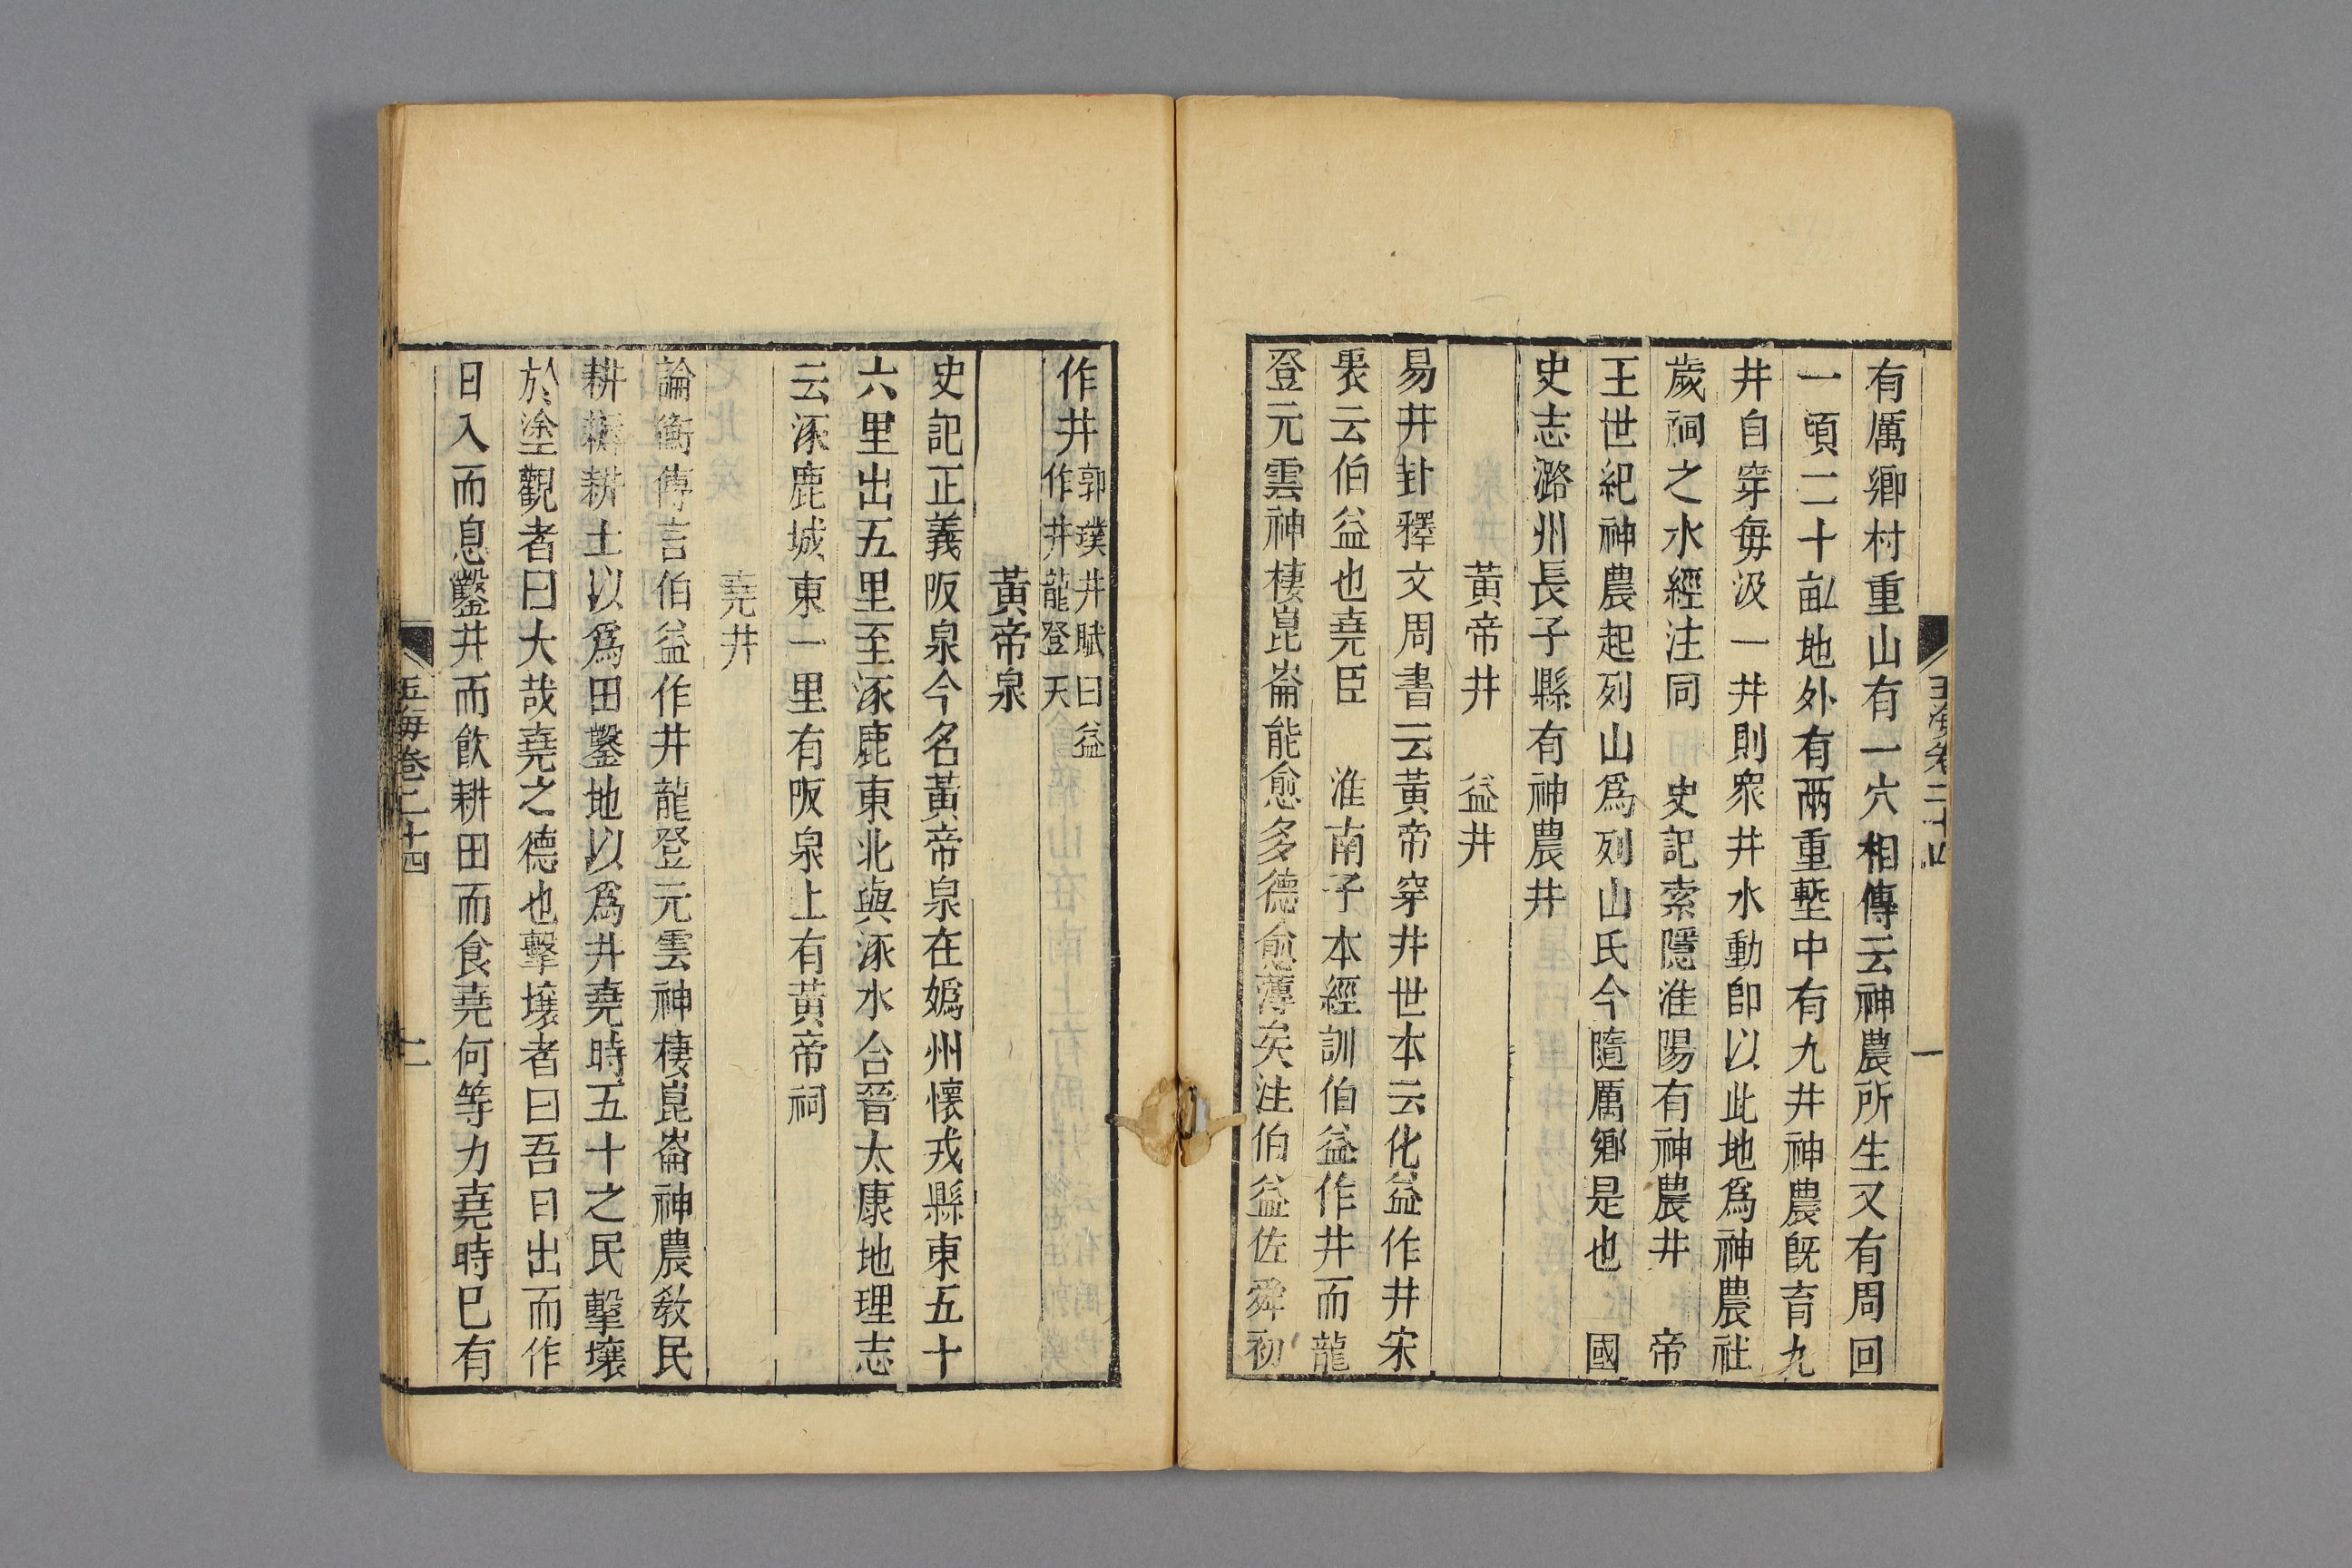 玉海卷二十四
一
有厲鄉村重山有一穴相傳云神農所生又有周回
一頃二十畝地外有兩重塹中有九井神農旣育九
井自穿每汲一井則衆井水動卽以此地爲神農社
歲祠之水經注同　史記索隱淮陽有神農井　帝
王世紀神農起列山爲列山氏今隨厲鄉是也　國
史志潞州長子縣有神農井
黃帝井　益井
易井卦釋文周書云黃帝穿井世本云化益作井宋
衷云伯益也堯臣　淮南子本經訓伯益作井而龍
登元雲神棲崑崙能愈多德愈薄矣注伯益佐舜初
作井郭璞井賦曰益
作井龍登天
黃帝泉
史記正義阪泉今名黃帝泉在媯州懷戎縣東五十
六里出五里至涿鹿東北與涿水合晉太康地理志
云涿鹿城東一里有阪泉上有黃帝祠
堯井
論衡傳言伯益作井龍登元雲神棲崑崙神農敎民
耕耨耕土以爲田鑿地以爲井堯時五十之民擊壤
於塗觀者曰大哉堯之德也擊壤者曰吾日出而作
日入而息鑿井而飲耕田而食堯何等力堯時已有
玉海卷二十四
二